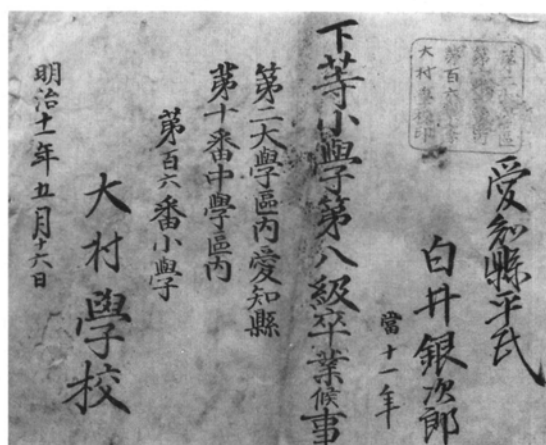 愛知縣平民
白井銀次郎
當十一年
下等小學第八級卒業候事
第二大學區內愛知縣
第十番中學區內
第百六番小學
大村學校
明治十一年五月十六日